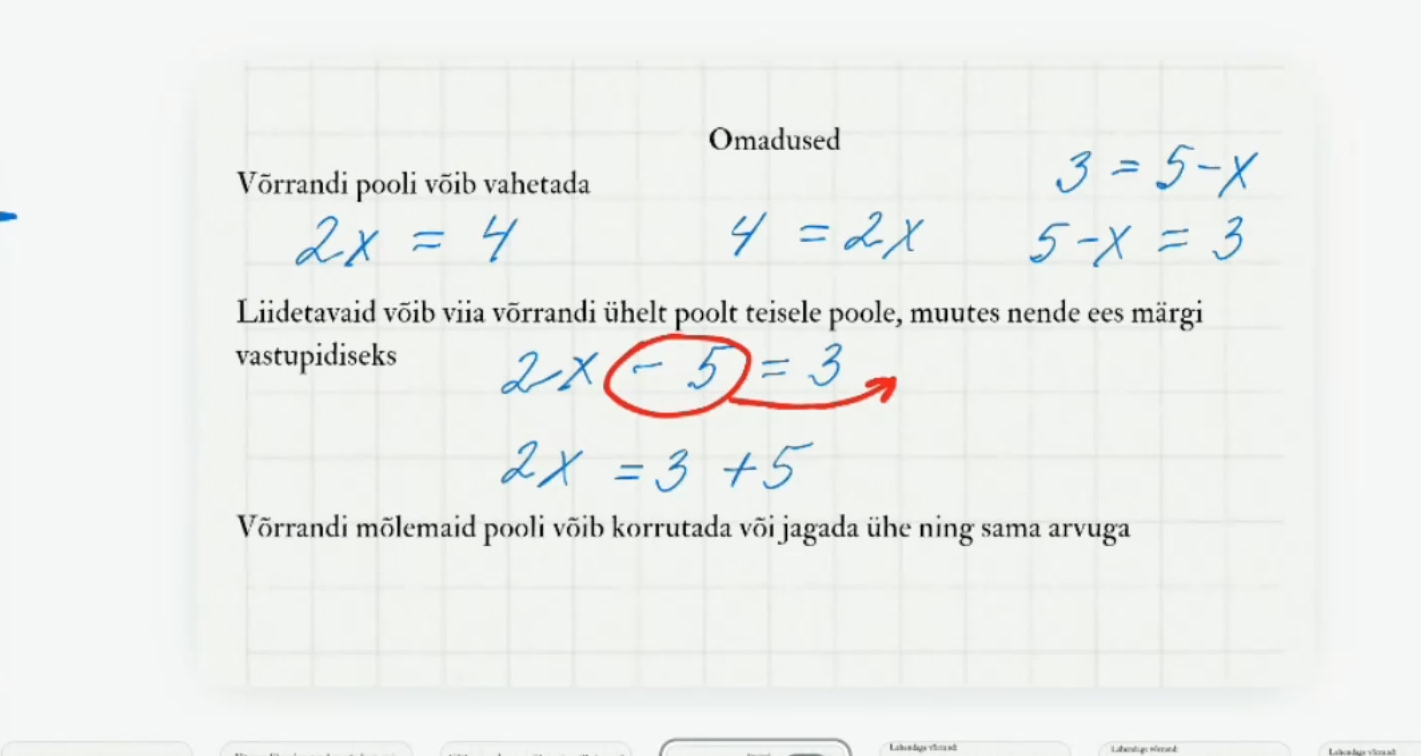 Omadused
3 = 5 - x
Võrrandi pooli võib vahetada
2x = 4 4 = 2x 5 - x = 3
Liidetavaid võib viia võrrandi ühelt poolt teisele poole, muutes nende ees märgi
vastupidiseks
2x - 5 = 3
2x = 3 + 5
Võrrandi mõlemaid pooli võib korrutada või jagada ühe ning sama arvuga